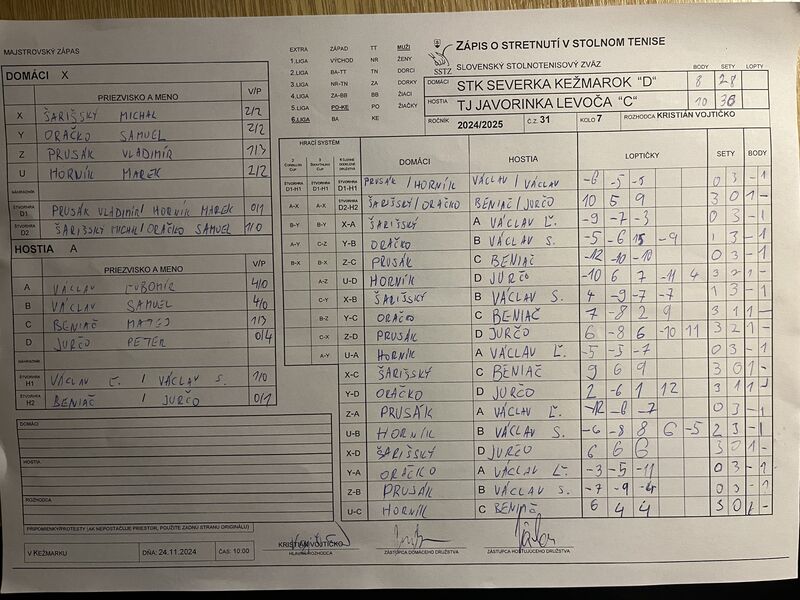 MAJSTROVSKÝ ZÁPAS
EXTRA ZÁPAD TT MUŽI
1.LIGA VÝCHOD NR ŽENY
2.LIGA BA-TT TN DORCI
3.LIGA NR-TN ZA DORKY
4.LIGA ZA-BB BB ŽIACI
5.LIGA PO-KE PO ŽIAČKY
6.LIGA BA KE
SSTZ
ZÁPIS O STRETNUTÍ V STOLNOM TENISE
SLOVENSKÝ STOLNOTENISOVÝ ZVÄZ
BODY SETY LOPTY
DOMÁCI STK SEVERKA KEŽMAROK "D" 8 28
HOSTIA TJ JAVORINKA LEVOČA "C" 10 36
ROČNÍK 2024/2025 Č.Z. 31 KOLO 7 ROZHODCA KRISTIÁN VOJTIČKO
DOMÁCI X
PRIEZVISKO A MENO V/P
X ŠARIŠSKÝ MICHAL 2/2
Y ORAČKO SAMUEL 2/2
Z PRUSÁK VLADIMÍR 1/3
U HORNÍK MAREK 2/2
NÁHRADNÍK
ŠTVORHRA D1 PRUSÁK VLADIMÍR/ HORNÍK MAREK 0/1
ŠTVORHRA D2 ŠARIŠSKÝ MICHAL/ORAČKO SAMUEL 1/0
HOSTIA A
PRIEZVISKO A MENO V/P
A VÁCLAV ĽUBOMÍR 4/0
B VÁCLAV SAMUEL 4/0
C BENIAČ MATEJ 1/3
D JURČO PETER 0/4
NÁHRADNÍK
ŠTVORHRA H1 VÁCLAV Ľ. / VÁCLAV S. 1/0
ŠTVORHRA H2 BENIAČ / JURČO 0/1
HRACÍ SYSTÉM
DOMÁCI HOSTIA LOPTIČKY SETY BODY
ŠTVORHRA D1-H1 ŠTVORHRA D1-H1 ŠTVORHRA D1-H1 PRUSÁK / HORNÍK VÁCLAV / VÁCLAV -6 -5 -5 0 3 -1
A-X A-X ŠTVORHRA D2-H2 ŠARIŠSKÝ/ORAČKO BENIAČ/JURČO 10 5 9 3 0 1 -
B-Y B-Y X-A ŠARIŠSKÝ A VÁCLAV Ľ. -9 -7 -3 0 3 -1
A-Y C-Z Y-B ORAČKO B VÁCLAV S. -5 -6 15 -9 1 3 -1
B-X B-X Z-C PRUSÁK C BENIAČ -12 -10 -10 0 3 -1
A-Z U-D HORNÍK D JURČO -10 6 7 -11 4 3 2 1 -
C-Y X-B ŠARIŠSKÝ B VÁCLAV S. 4 -9 -7 -7 1 3 -1
B-Z Y-C ORAČKO C BENIAČ 7 -8 2 9 3 1 1 -
C-X Z-D PRUSÁK D JURČO 6 -8 6 -10 11 3 2 1 -
A-Y U-A HORNÍK A VÁCLAV Ľ. -5 -5 -7 0 3 -1
X-C ŠARIŠSKÝ C BENIAČ 9 6 9 3 0 1 -
Y-D ORAČKO D JURČO 2 -6 1 12 3 1 1 -
Z-A PRUSÁK A VÁCLAV Ľ. -12 -6 -7 0 3 -1
U-B HORNÍK B VÁCLAV S. -6 -8 8 6 -5 2 3 -1
X-D ŠARIŠSKÝ D JURČO 6 6 6 3 0 1 -
Y-A ORAČKO A VÁCLAV Ľ. -3 -5 -11 0 3 -1
Z-B PRUSÁK B VÁCLAV S. -7 -9 -4 0 3 -1
U-C HORNÍK C BENIAČ 6 4 4 3 0 1 -
DOMÁCI
HOSTIA
ROZHODCA
PRIPOMIENKY/PROTESTY (AK NEPOSTAČUJE PRIESTOR, POUŽITE ZADNÚ STRANU ORIGINÁLU)
V KEŽMARKU DŇA: 24.11.2024 ČAS: 10:00
KRISTIÁN VOJTIČKO
HLAVNÝ ROZHODCA ZÁSTUPCA DOMÁCEHO DRUŽSTVA ZÁSTUPCA HOSŤUJÚCEHO DRUŽSTVA